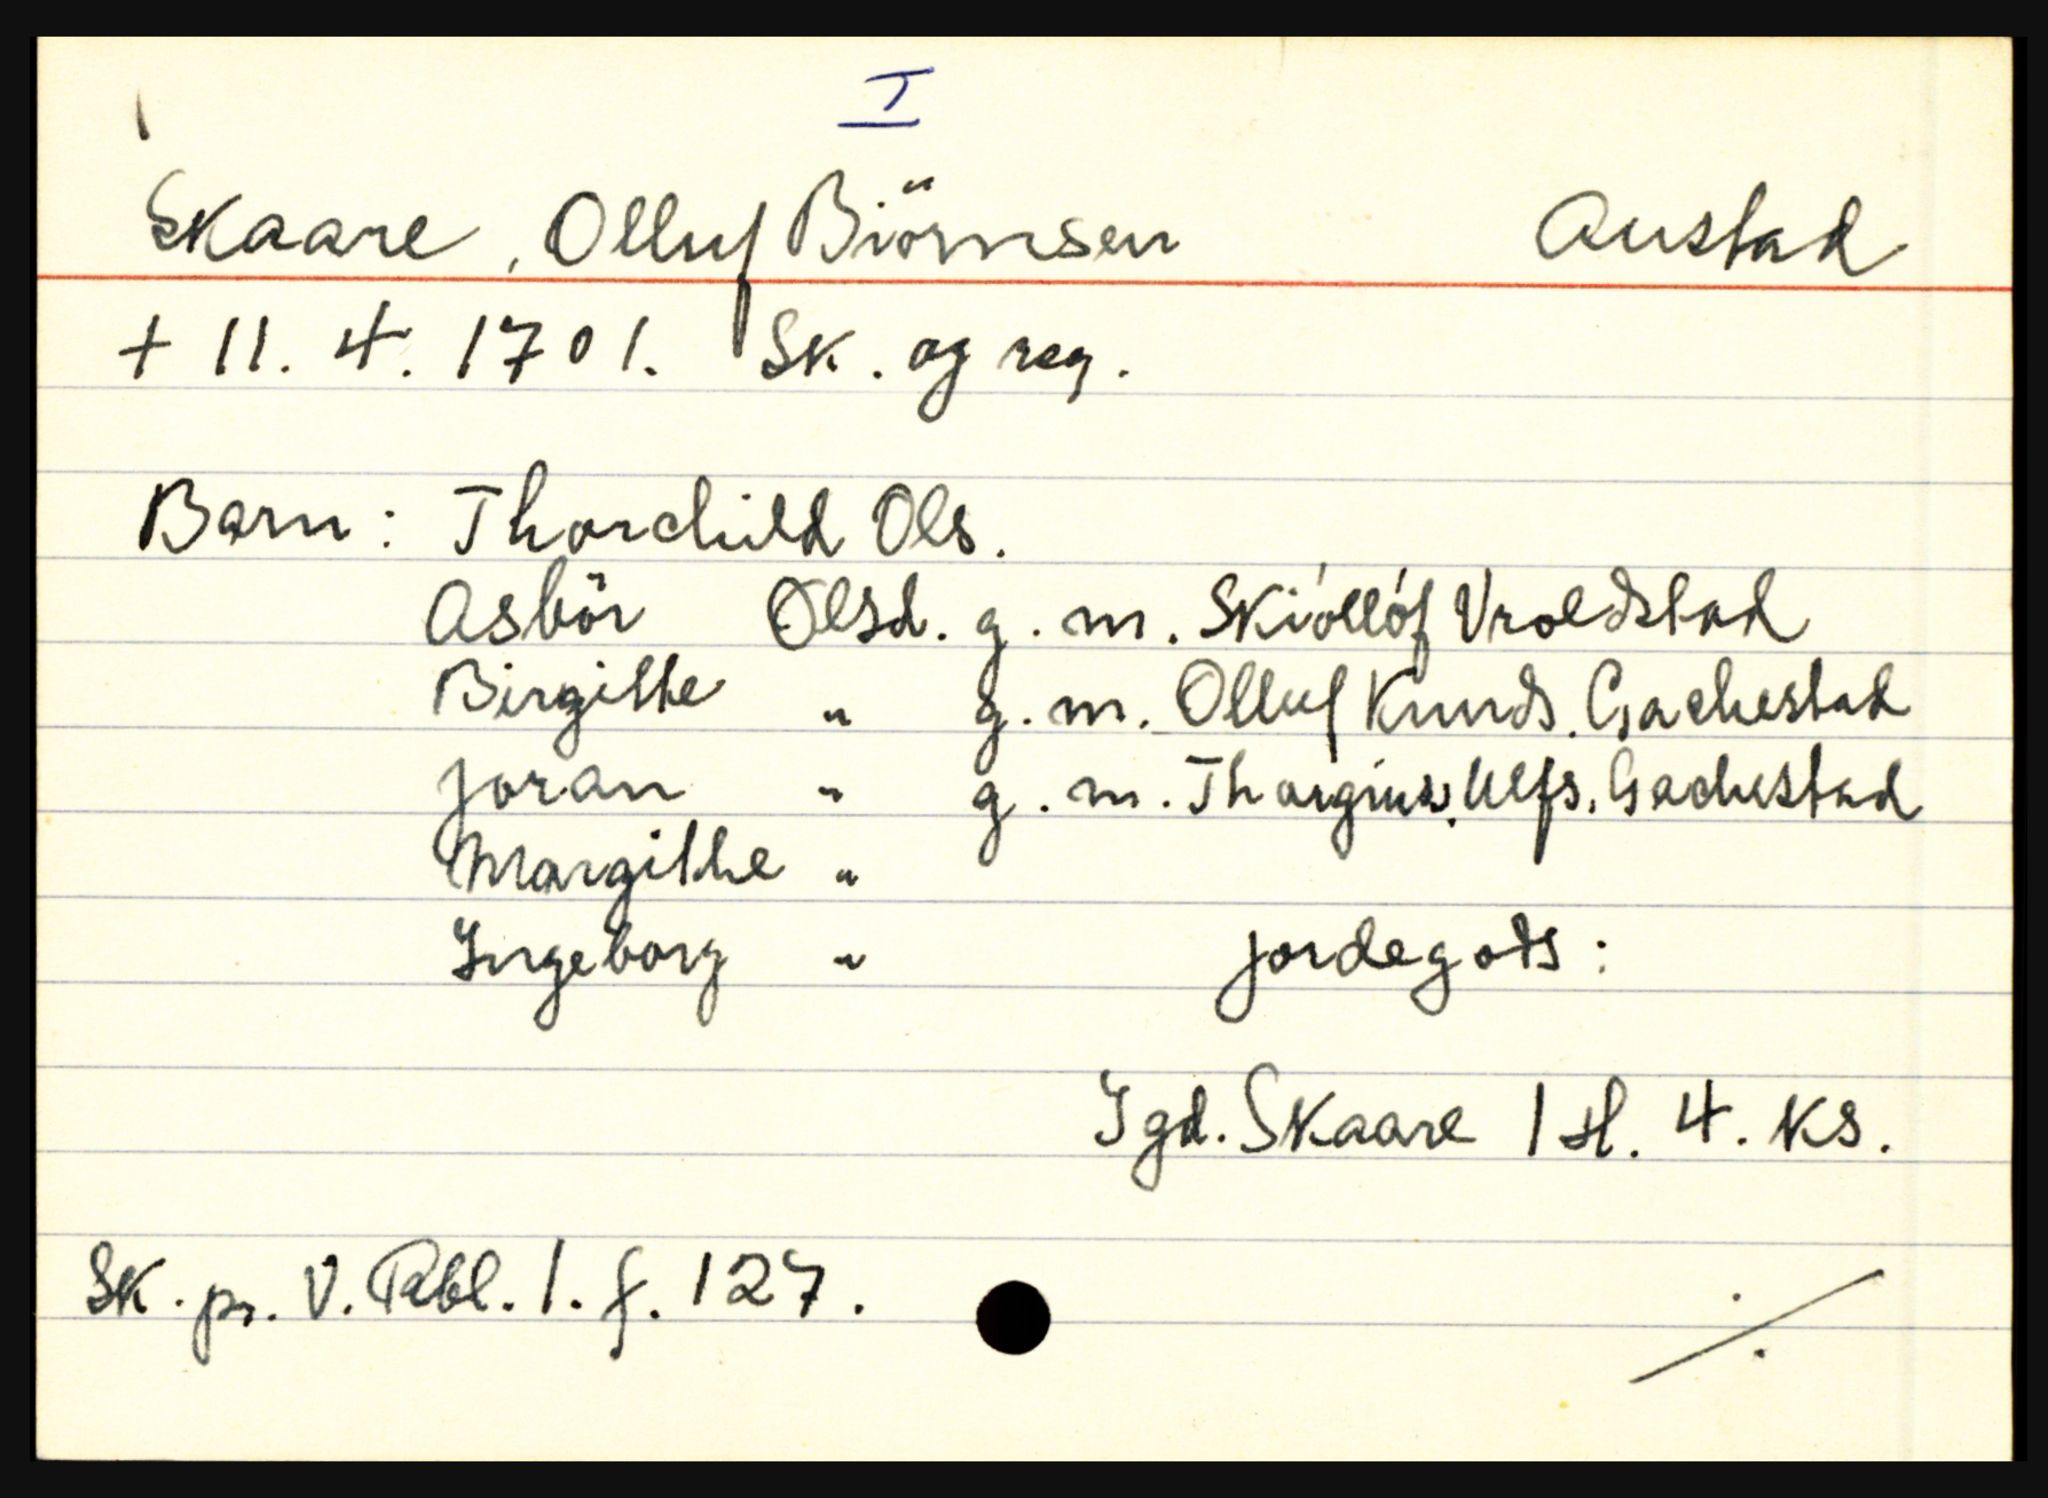 I
Skaare, Olluf Biörnsen Austad
+ 11. 4. 1701. Sk. og reg.
Barn: Thorchild Ols.
Asbör Olsd. g. m. Skióllóf Vroldstad
Birgithe " g. m. Olluf Knuds. Gachestad
Joran " g. m. Thorgius. Ulfs. Gachestad
Margithe "
Ingeborg " Jordegods:
I gd. Skaare 1 H. 4. Ks.
Sk. pr. V. Rbl. 1. f. 127.